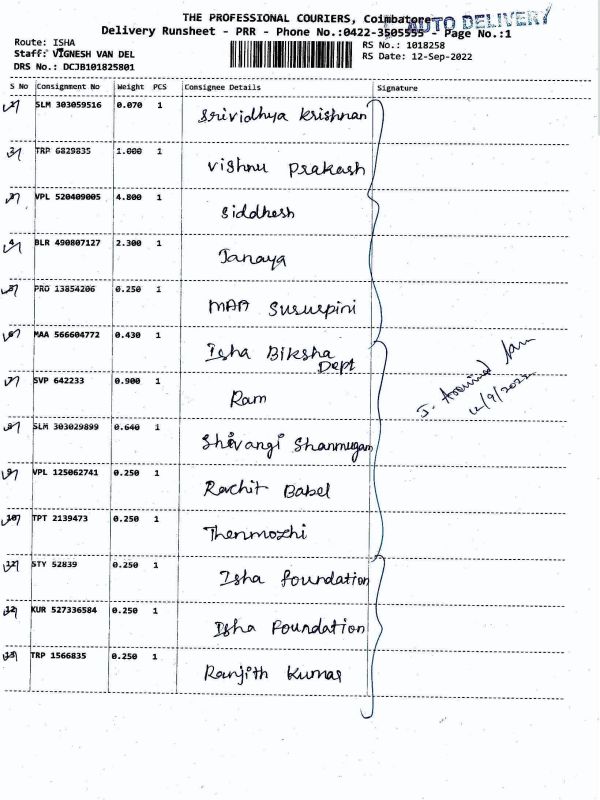 THE PROFESSIONAL COURIERS, Coimbatore
AUTO DELIVERY
Delivery Runsheet - PRR - Phone No.:0422-3505555 - Page No.:1
Route: ISHA
RS No.: 1018258
Staff: VIGNESH VAN DEL
RS Date: 12-Sep-2022
DRS No.: DCJB101825801
S No Consignment No Weight PCS Consignee Details Signature
1 SLM 303059516 0.070 1 Srividhya Krishnan
2 TRP 6829835 1.000 1 Vishnu Prakash
3 VPL 520409005 4.800 1 Siddhesh
4 BLR 490807127 2.300 1 Janaya
5 PRO 13854206 0.250 1 MAA
6 MAA 566604772 0.430 1 Isha Biksha
Dept
7 SVP 642233 0.900 1 Ram
8 SLM 303029899 0.640 1 Shivangi Shanmugam
9 VPL 125062741 0.250 1 Rachit Babel
10 TPT 2139473 0.250 1 Thenmozhi
STY 52839 0.250 1 Isha Foundation
12 KUR 527336584 0.250 1 Isha Foundation
13 TRP 1566835 0.250 1 Ranjith Kumar